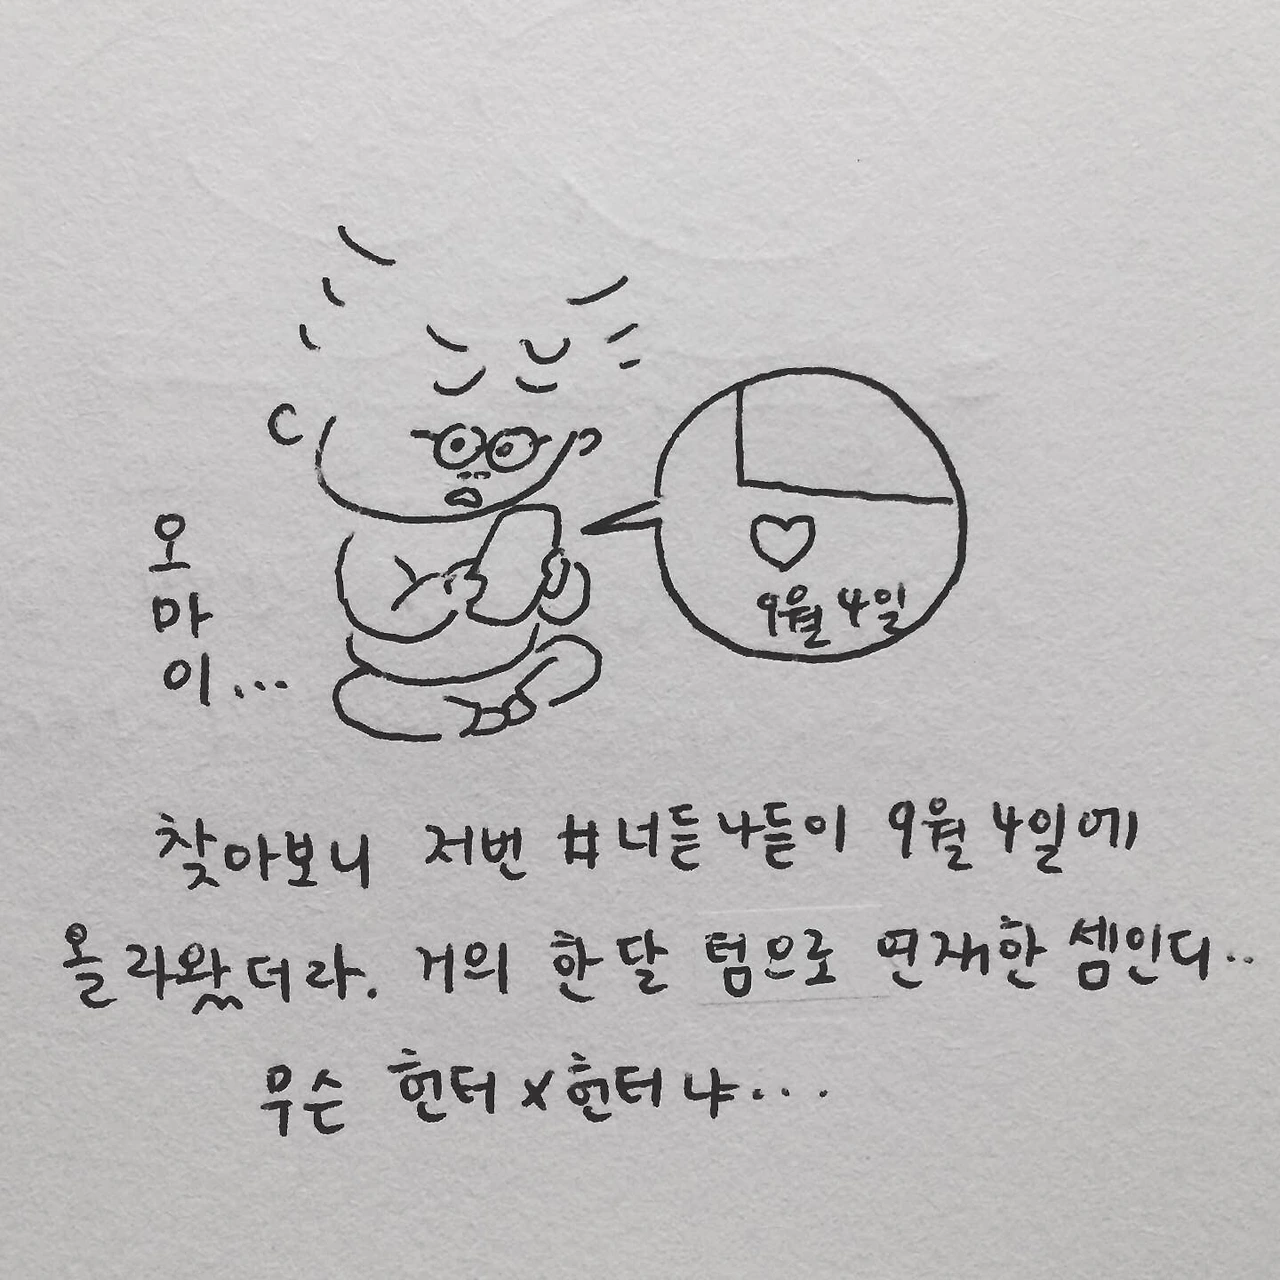 오
마
이...
9월 4일
찾아보니 저번 #너듣나듣이 9월 4일에
올라왔더라. 거의 한달 텀으로 연재한 셈인디..
무슨 헌터x헌터냐...